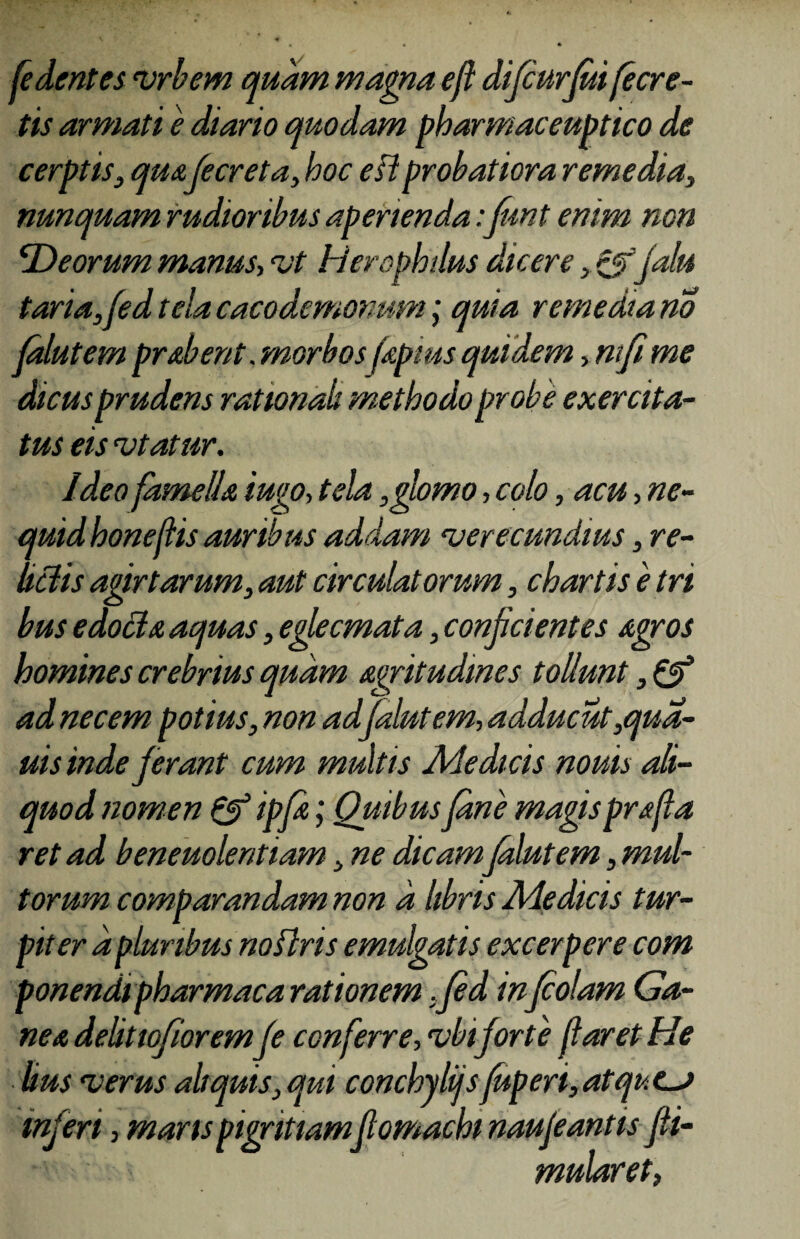 ſedentes vrbem quàm magna eſt diſcurſui ſecre-
tis armati è diario quodam pharmaceuptico de
cerptis, quæ ſecreta, hoc eſt probatiora remedia,
nunquam rudioribus aperienda: ſunt enim non
Deorum manus, vt Herophilus dicere, & ſalu
taria, ſed tela cacodemonum; quia remedia nō
ſalutem præbent, morbos ſæpius quidem, niſi me
dicus prudens rationali methodo probè exercita-
tus eis vtatur.
Ideo famellæ iugo, tela, glomo, colo, acu, ne-
quid honeſtis auribus addam verecundius, re-
lictis agirtarum, aut circulatorum, chartis è tri
bus edoctæ aquas, eglecmata, conficientes ægros
homines crebrius quàm ægritudines tollunt, &
ad necem potius, non ad ſalutem, adducūt, quā-
uis inde ferant cum multis Medicis nouis ali-
quod nomen & ipſæ; Quibus ſanè magis præſta
ret ad beneuolentiam, ne dicam ſalutem, mul-
torum comparandam non à libris Medicis tur-
piter à pluribus noſtris emulgatis excerpere com
ponendi pharmaca rationem, ſed in ſcolam Ga-
neæ delitioſiorem ſe conferre, vbi forte ſtaret He
lius verus aliquis, qui conchylijs ſuperi, atque
inferi, maris pigritiam ſtomachi nauſeantis ſti-
mularet,